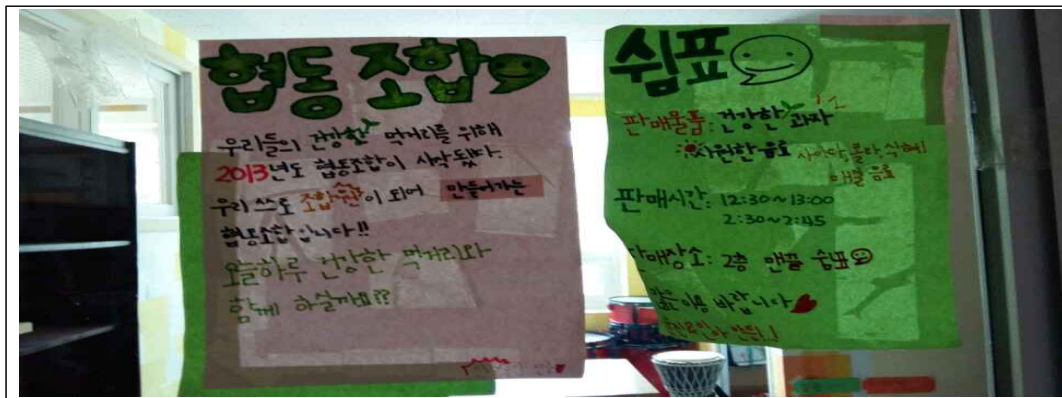 협동조합
우리들의 건강한 먹거리를 위해
2013년도 협동조합이 시작됐다.
우리 쓰로 조합원이 되어 만들어가는
협동조합입니다!!
오늘하루 건강한 먹거리와
함께 하실까요??
쉼표
판매물품: 건강한 과자
시원한 음료
판매시간: 12:30~13:00
2:30~2:45
판매장소: 2층 맨끝 쉼표
이용 바랍니다